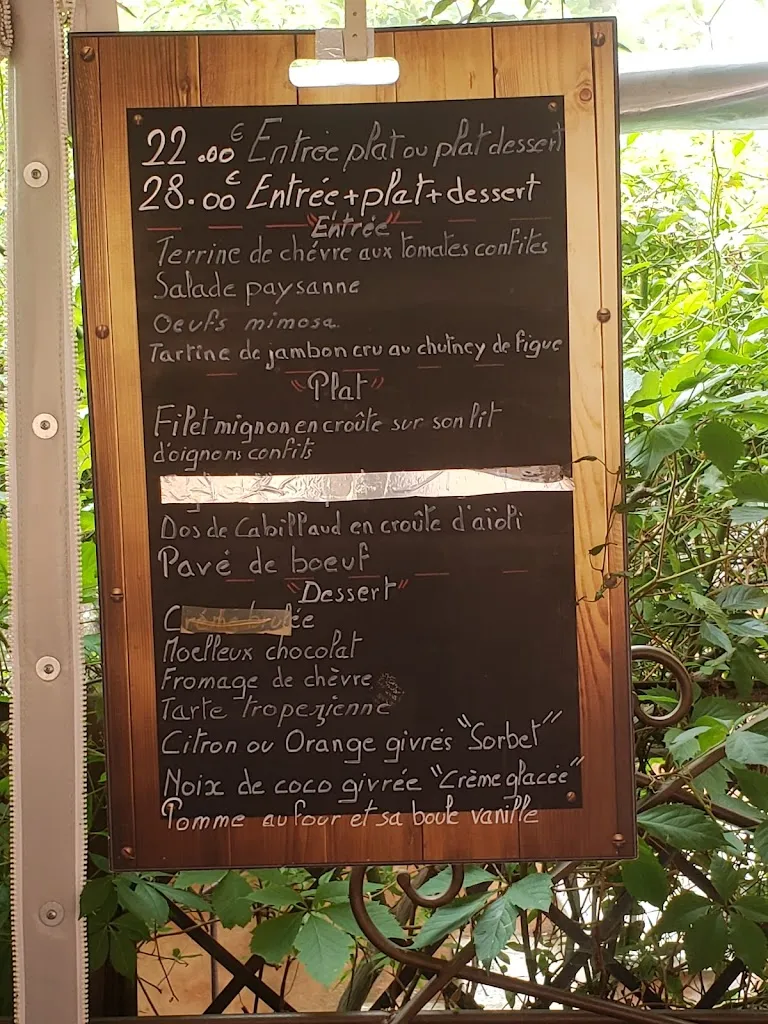 22.00€ Entrée plat ou plat dessert
28.00€ Entrée+plat+dessert
"Entrée"
Terrine de chévre aux tomates confites
Salade paysanne
Oeufs mimosa.
Tartine de jambon cru au chutney de figue
"Plat"
Filet mignon en croûte sur son lit
d'oignons confits
Dos de Cabillaud en croûte d'aïoli
Pavé de boeuf
"Dessert"
Crème brulée
Moelleux chocolat
Fromage de chèvre
Tarte tropezienne
Citron ou Orange givrés "Sorbet"
Noix de coco givrée "Crème glacée"
Pomme au four et sa boule vanille